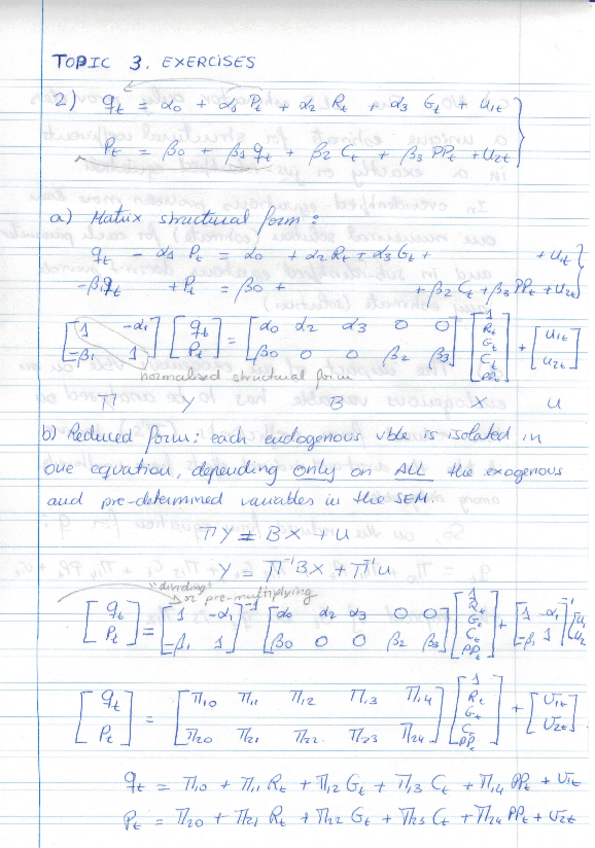 TOPIC 3. EXERCISES
2) qt = α0 + α1 Pt + α2 Rt + α3 Gt + U1t
Pt = β0 + β1 qt + β2 Ct + β3 PPt + U2t
a) Matrix structural form:
qt - α1 Pt = α0 + α2 Rt + α3 Gt + + U1t
-β1qt + Pt = β0 + + β2 Ct + β3 PPt + U2t
[1 -α1] [qt] = [α0 α2 α3 0 0] [1 Rt Gt Ct PPt] + [U1t]
[-β1 1] [Pt] [β0 0 0 β2 β3] [U2t]
normalised structural form
Π Y B X U
b) Reduced form: each endogenous vble is isolated in
one equation, depending only on ALL the exogenous
and pre-determined variables in the SEM.
ΠY = BX + U
Y = Π⁻¹BX + Π⁻¹U
"dividing"
or pre-multiplying
[qt] = [1 -α1]⁻¹ [α0 α2 α3 0 0] [1 Rt Gt Ct PPt] + [1 -α1]⁻¹ [U1
[Pt] [-β1 1] [β0 0 0 β2 β3] [-β1 1] U2
[qt] = [Π10 Π11 Π12 Π13 Π14] [1 Rt Gt Ct PPt] + [V1t]
[Pt] [Π20 Π21 Π22 Π23 Π24] [V2t]
qt = Π10 + Π11 Rt + Π12 Gt + Π13 Ct + Π14 PPt + V1t
Pt = Π20 + Π21 Rt + Π22 Gt + Π23 Ct + Π24 PPt + V2t